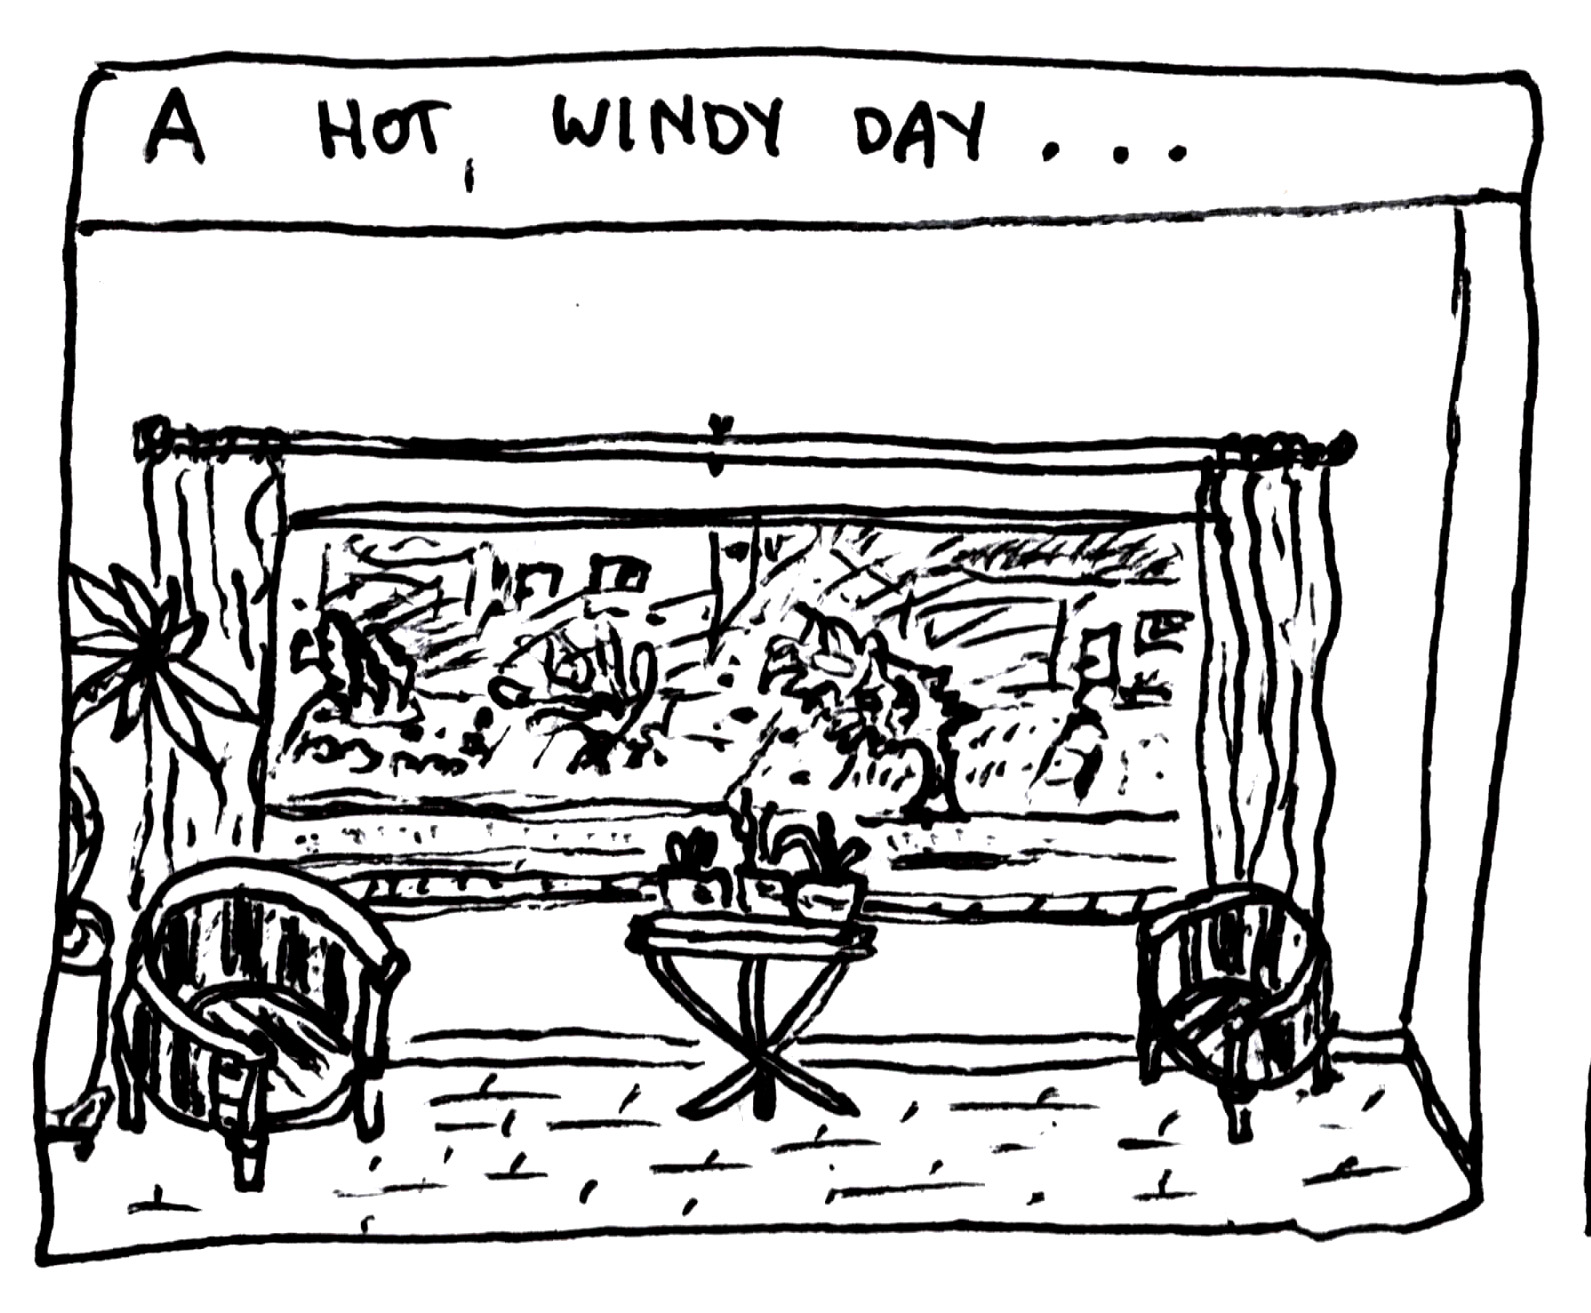 A HOT, WINDY DAY...